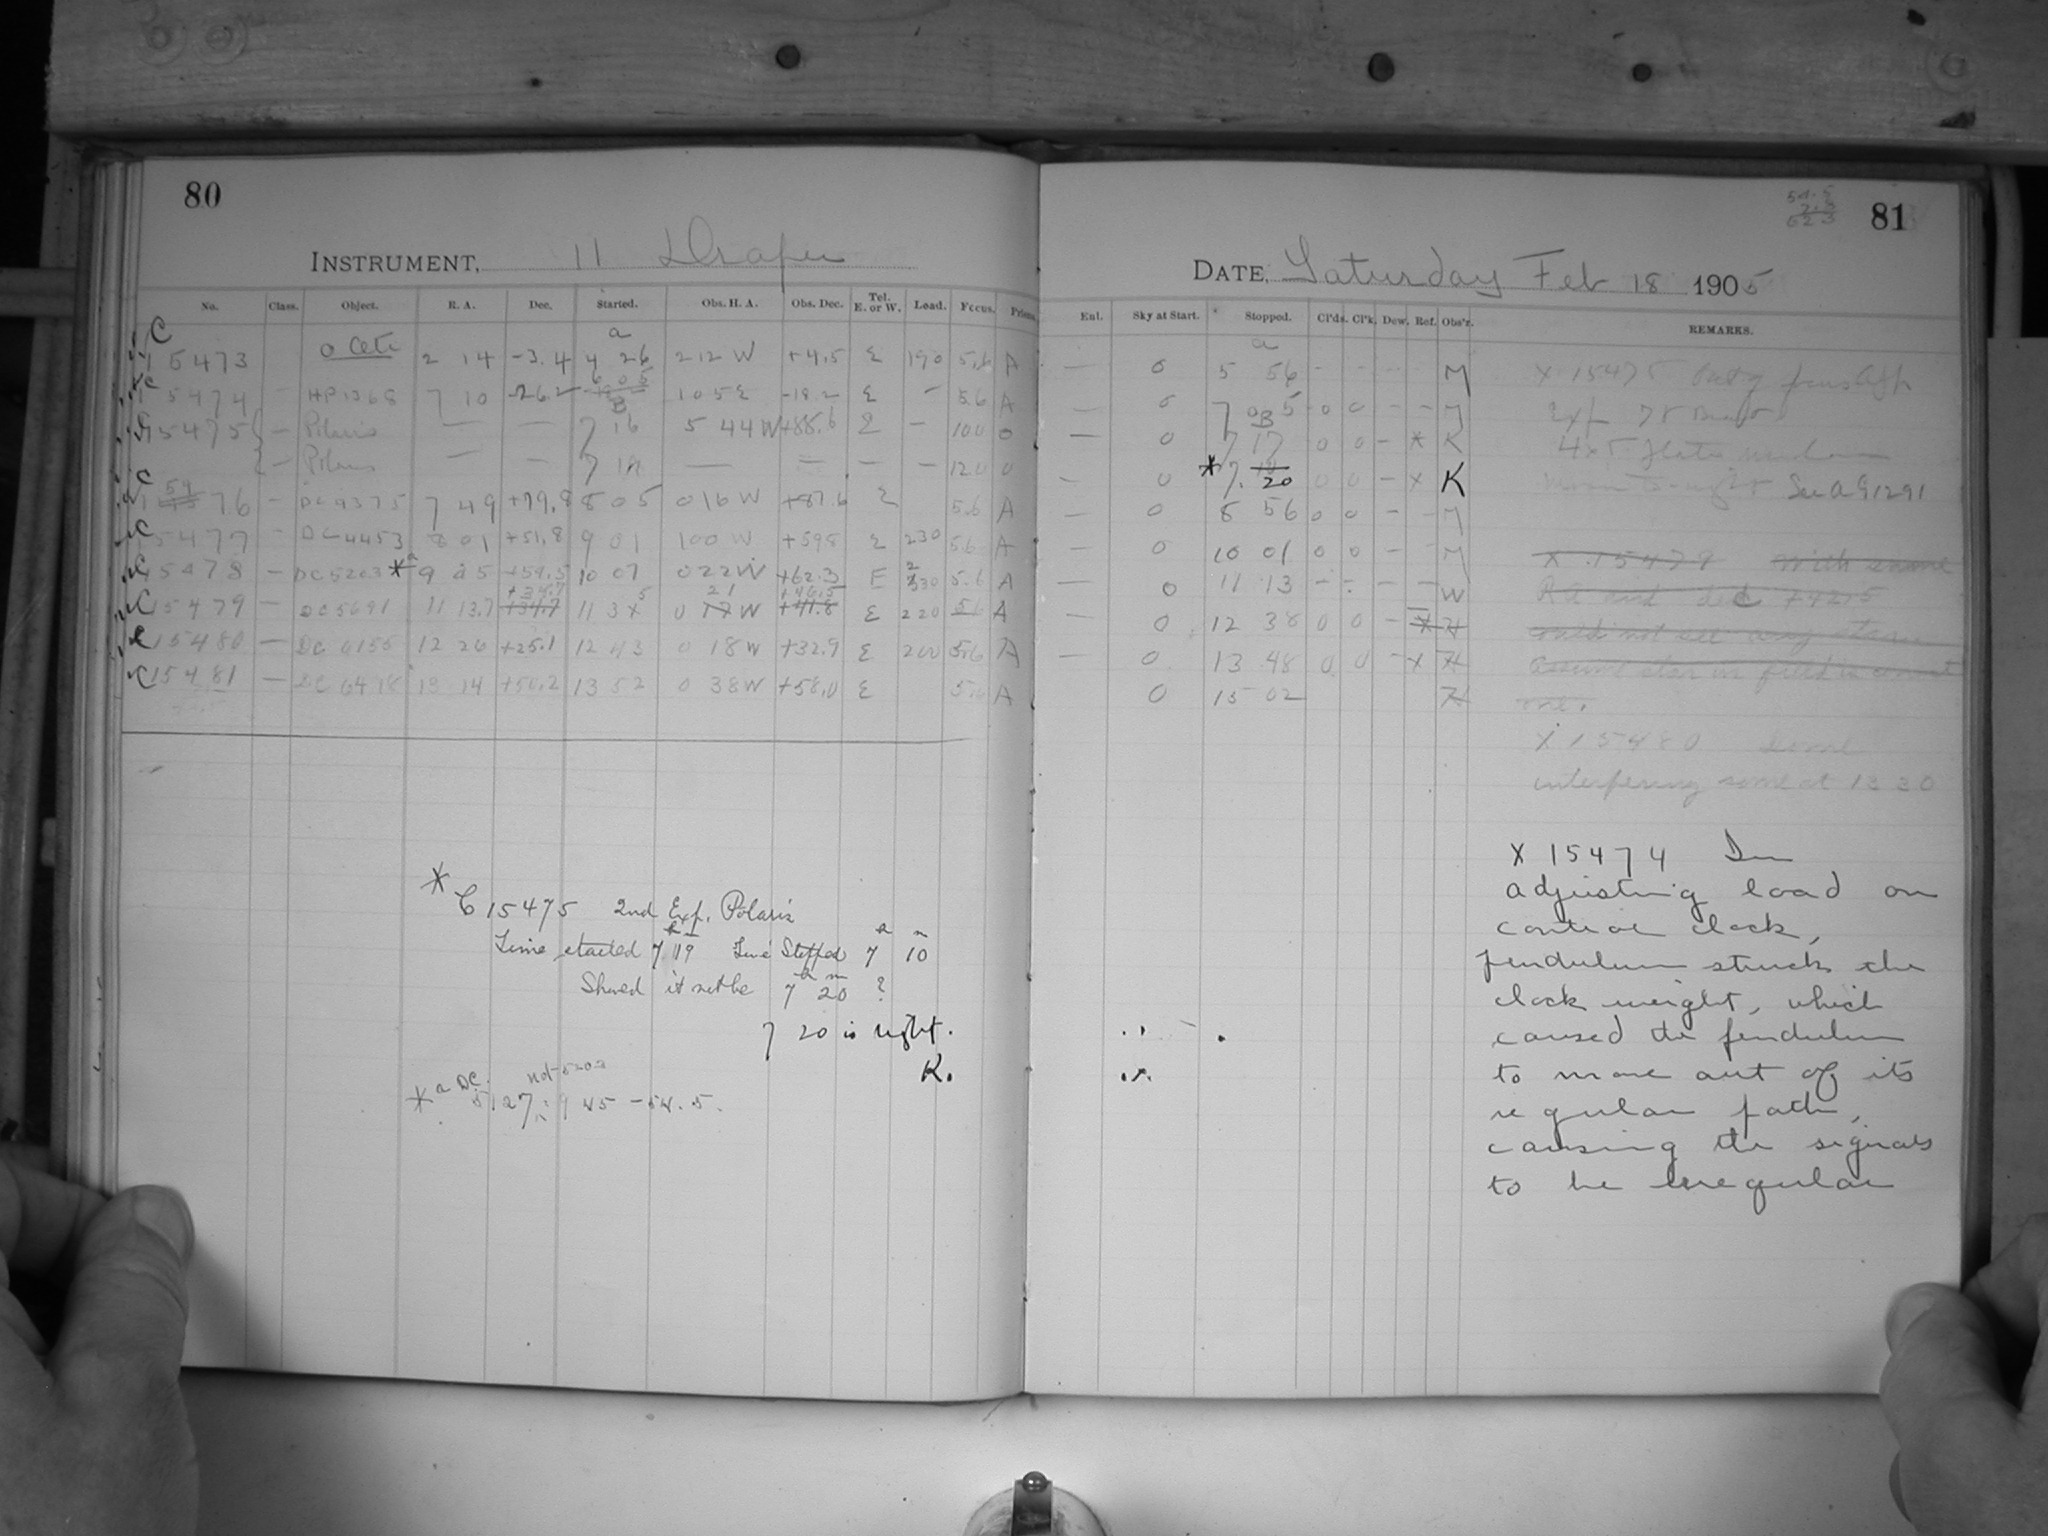 80
INSTRUMENT, 11 Draper
No. Class. Object. R. A. Dec. Started. Obs. H. A. Obs. Dec. Tel. E. or W. Load. Focus.
C 15473 o Ceti 2 14 -3.4 4 26 2 12 W +4.5 E 190 5.6 A
C 15474 - HP 1368 7 10 -26.2 6 05 1 05 E -18.2 E - 5.6 A
15475 - Polaris — — 7 16 5 44 W +88.6 E - 100 0
- Polaris — — 7 19 — — — - 120 0
C 15476 - DC 4375 7 49 +79.8 8 05 0 16 W +87.6 E 5.6 A
C 15477 - DC 4453 8 01 +51.8 9 01 1 00 W +59.8 E 230 5.6 A
C 15478 - DC 5203 *a 9 45 +54.5 10 07 0 22 W +62.3 E 230 5.6 A
C 15479 - DC 5691 11 13.7 +38.7 11 35 0 21 W +46.5 E 220 5.6 A
C 15480 - DC 6155 12 26 +25.1 12 43 0 18 W +32.9 E 200 5.6 A
C 15481 - DC 6478 13 14 +50.2 13 52 0 38 W +58.0 E 5.6 A
* C 15475 2nd Exp. Polaris
Time started 7 19 Time Stopped 7 10
Should it not be 7 20 ?
7 20 is right.
K.
*a DC not 5203
5127: 9 45 - 54.5.
54.5
81
DATE, Saturday Feb 18 1905
Enl. Sky at Start. Stopped. Cl'ds. Cl'k. Dew. Ref. Obs'r. REMARKS.
— 0 5 56 - - - - M
— 0 7 05 0 0 - - M
— 0 7 17 0 0 - * K
— 0 * 7. 20 0 0 - x K
— 0 8 56 0 0 - - M
— 0 10 01 0 0 - - M
0 11 13 - - - - W
— 0 12 38 0 0 - x H
— 0 13 48 0 0 - x H
0 15 02 H
X 15475
4x5 plate
See a 91291
X 15479 with same
RA and dec +42.5
could not see any stars
Assume star in field is correct
one.
X 15480 Some
interfering some at 13 30
X 15474 In
adjusting load on
control clock,
pendulum struck the
clock weight, which
caused the pendulum
to move out of its
regular path,
causing the signals
to be irregular